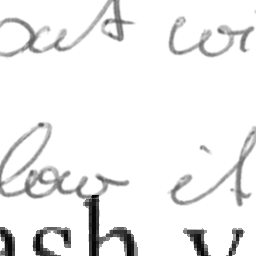 out wi
low it
ash y